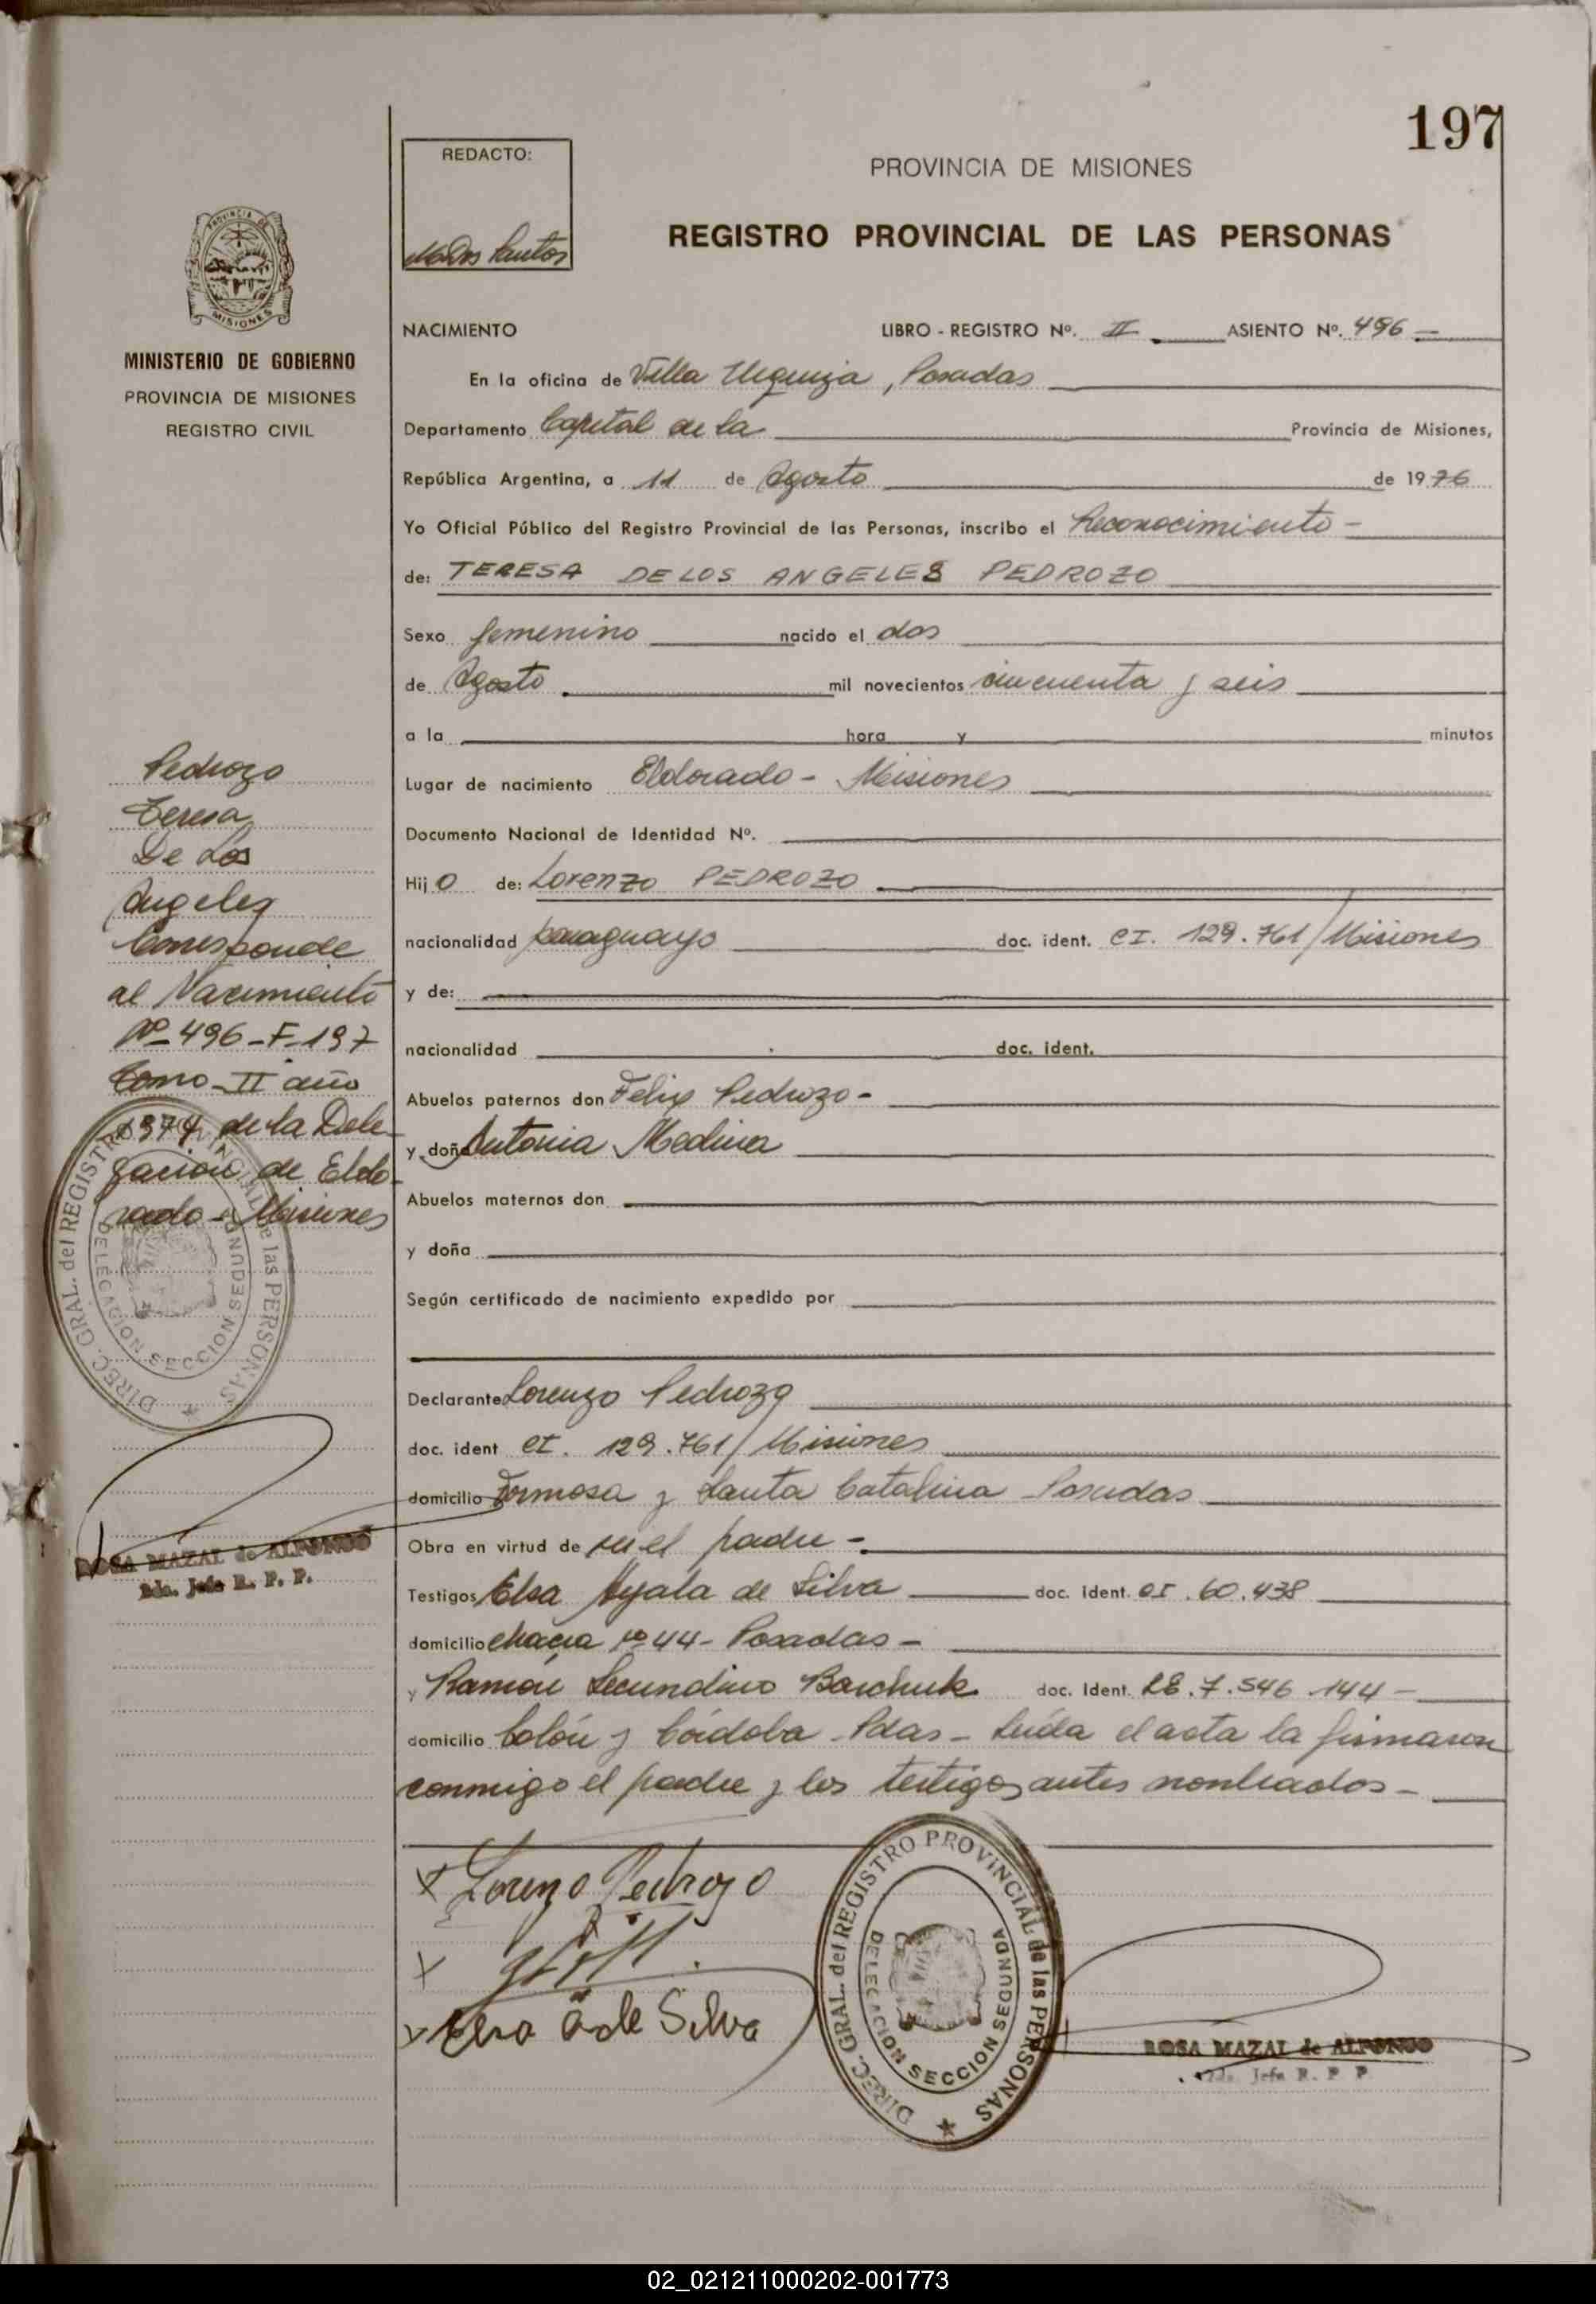 197
REDACTO:
PROVINCIA DE MISIONES
REGISTRO PROVINCIAL DE LAS PERSONAS
PROVINCIA DE
MISIONES
MINISTERIO DE GOBIERNO
PROVINCIA DE MISIONES
REGISTRO CIVIL
NACIMIENTO LIBRO - REGISTRO Nº. II ASIENTO Nº. 496
En la oficina de Villa Urquiza, Posadas
Departamento Capital de la Provincia de Misiones,
República Argentina, a 11 de Agosto de 1976
Yo Oficial Público del Registro Provincial de las Personas, inscribo el Reconocimiento -
de: TERESA DE LOS ANGELES PEDROZO
Sexo femenino nacido el dos
de Agosto mil novecientos cincuenta y seis
a la hora y minutos
Lugar de nacimiento Eldorado - Misiones
Documento Nacional de Identidad Nº.
Hijo de: Lorenzo PEDROZO
nacionalidad paraguayo doc. ident. CI. 129.761/Misiones
y de:
nacionalidad doc. ident.
Abuelos paternos don Felix Pedrozo -
y doña Antonia Medina
Abuelos maternos don
y doña
Según certificado de nacimiento expedido por
Declarante Lorenzo Pedrozo
doc. ident CI. 129.761/Misiones
domicilio Formosa y Santa Catalina Posadas
Obra en virtud de ser el padre -
Testigos Elsa Ayala de Silva doc. ident. CI. 60.438
domicilio chacra Nº 44 - Posadas -
y Ramón Secundino Barchuk doc. ident. LE. 7.546.144 -
domicilio Colón y Córdoba - Pdas - Leída el acta la firmaron
conmigo el padre y los testigos antes nombrados -
Pedrozo
Teresa
De Los
Angeles
Corresponde
al Nacimiento
Nº 496 - F - 197
Tomo - II año
de la Dele
gación de Eldo
rado - Misiones
DIREC. GRAL. del REGISTRO PROVINCIAL de las PERSONAS
DELEGACION SECCION SEGUNDA
ROSA MAZAL de ALFONSO
Jefe R. P. P.
x Lorenzo Pedrozo
x
x Elsa A de Silva
DIREC. GRAL. del REGISTRO PROVINCIAL de las PERSONAS
DELEGACION SECCION SEGUNDA
ROSA MAZAL de ALFONSO
Jefe R. P. P.
02_021211000202-001773